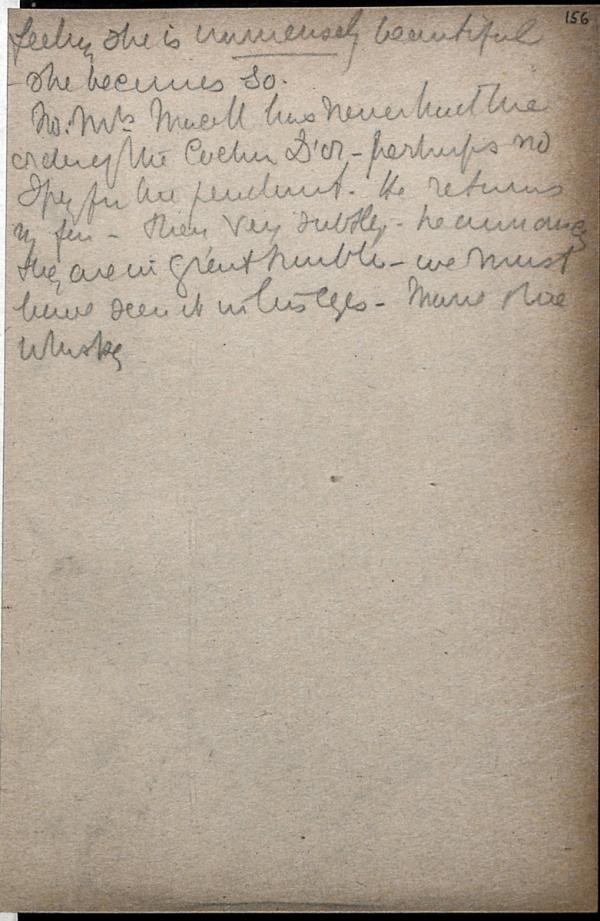 156
feeling she is immensely beautiful
- she becomes so.
No. Mrs has never had the
order of the Cochon D'or - perhaps no
for the pendant. He returns
my pen - then very subtly - he announces
they are in great trouble - we must
have seen it in his eyes - More
whisky